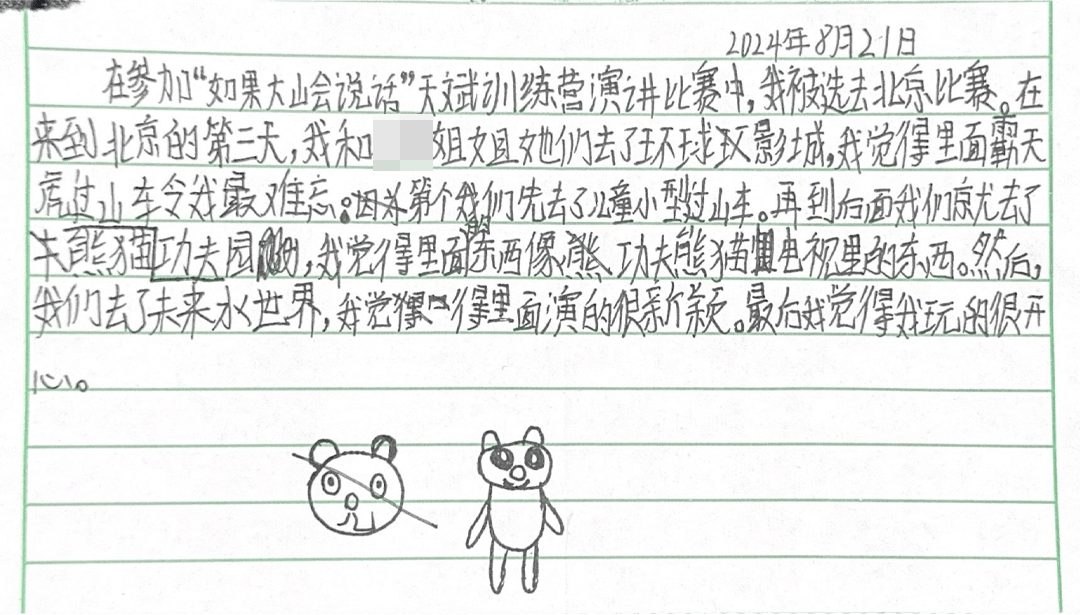 2024年8月21日
在参加“如果大山会说话”天斌训练营演讲比赛中,我被选去北京比赛。在
来到北京的第三天,我和姐姐她们去了环球影城,我觉得里面霸天
虎过山车令我最难忘。因为第个我们先去了儿童小型过山车。再到后面我们就去了
熊猫功夫园,我觉得里面的东西像熊功夫熊猫电视里的东西。然后,
我们去了未来水世界,我觉得里面演的很新颖。最后我觉得我玩的很开
心。